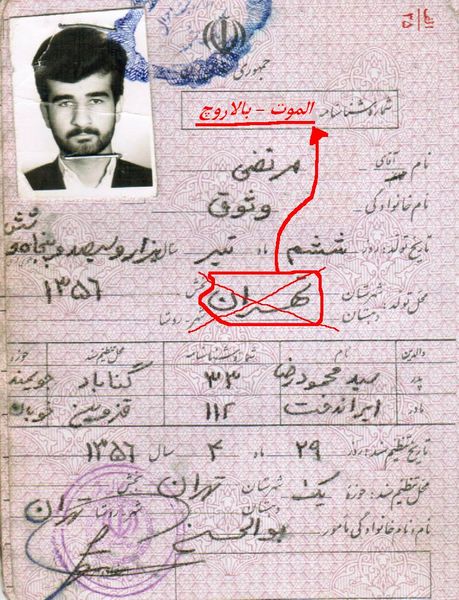 الف
۲۵
جمهوری
شماره شناسنامه
الموت - بالاروچ
نام آقای مرتضی
نام خانوادگی وثوق
شش
تاریخ تولد: روز ششم ماه تیر سال هزار و سیصد و پنجاه و
محل تولد: شهرستان تهران بخش ۱۳۵۶
دهستان شهر - روستا
والدین نام شماره شناسنامه محل تنظیم سند حوزه
پدر سید محمودرضا ۳۳ گناباد جویمند
مادر ایراندخت ۱۱۲ قزوین
تاریخ تنظیم سند: روز ۲۹ ماه ۴ سال ۱۳۵۶
محل تنظیم سند: حوزه یک شهرستان تهران بخش
دهستان شهر - روستا تهران
نام، نام خانوادگی مأمور بوالحسنی